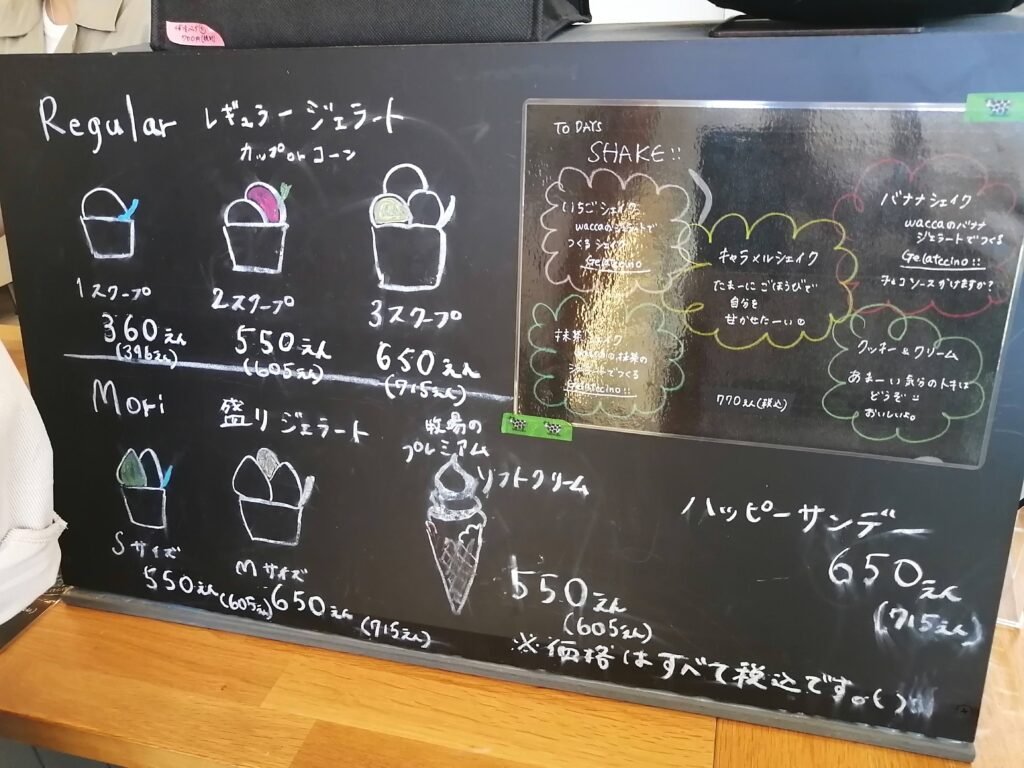 Regular レギュラー ジェラート
カップorコーン
1スクープ
360えん
(396えん)
2スクープ
550えん
(605えん)
3スクープ
650えん
(715えん)
Mori 盛り ジェラート
Sサイズ
550えん
(605えん)
Mサイズ
650えん
(715えん)
牧場の
プレミアム
ソフトクリーム
550えん
(605えん)
ハッピーサンデー
650えん
(715えん)
※価格はすべて税込です。( )
TO DAYS
SHAKE!!
いちごシェイク
waccaのジェラートで
つくるシェイク
Gelatccino
キャラメルシェイク
たまーに ごほうびで
自分を
甘かせたーい
バナナシェイク
waccaのバナナ
ジェラートでつくる
Gelatccino!!
チョコソースかけますか?
抹茶シェイク
waccaの抹茶の
ジェラートでつくる
Gelatccino!!
クッキー&クリーム
あまーい気分のトキは
どうぞ
おいしいよ。
770えん(税込)